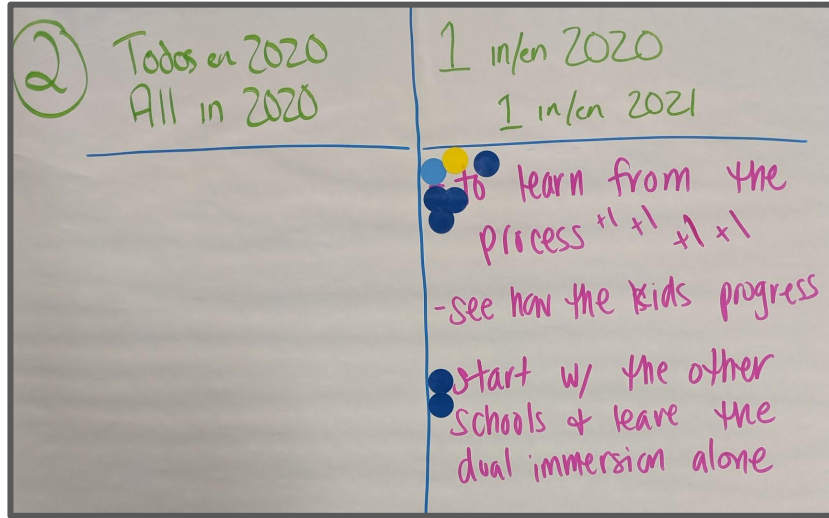 2
Todos en 2020
All in 2020
1 in/en 2020
1 in/en 2021
- to learn from the
process +1 +1 +1 +1
- see how the kids progress
start w/ the other
schools & leave the
dual immersion alone